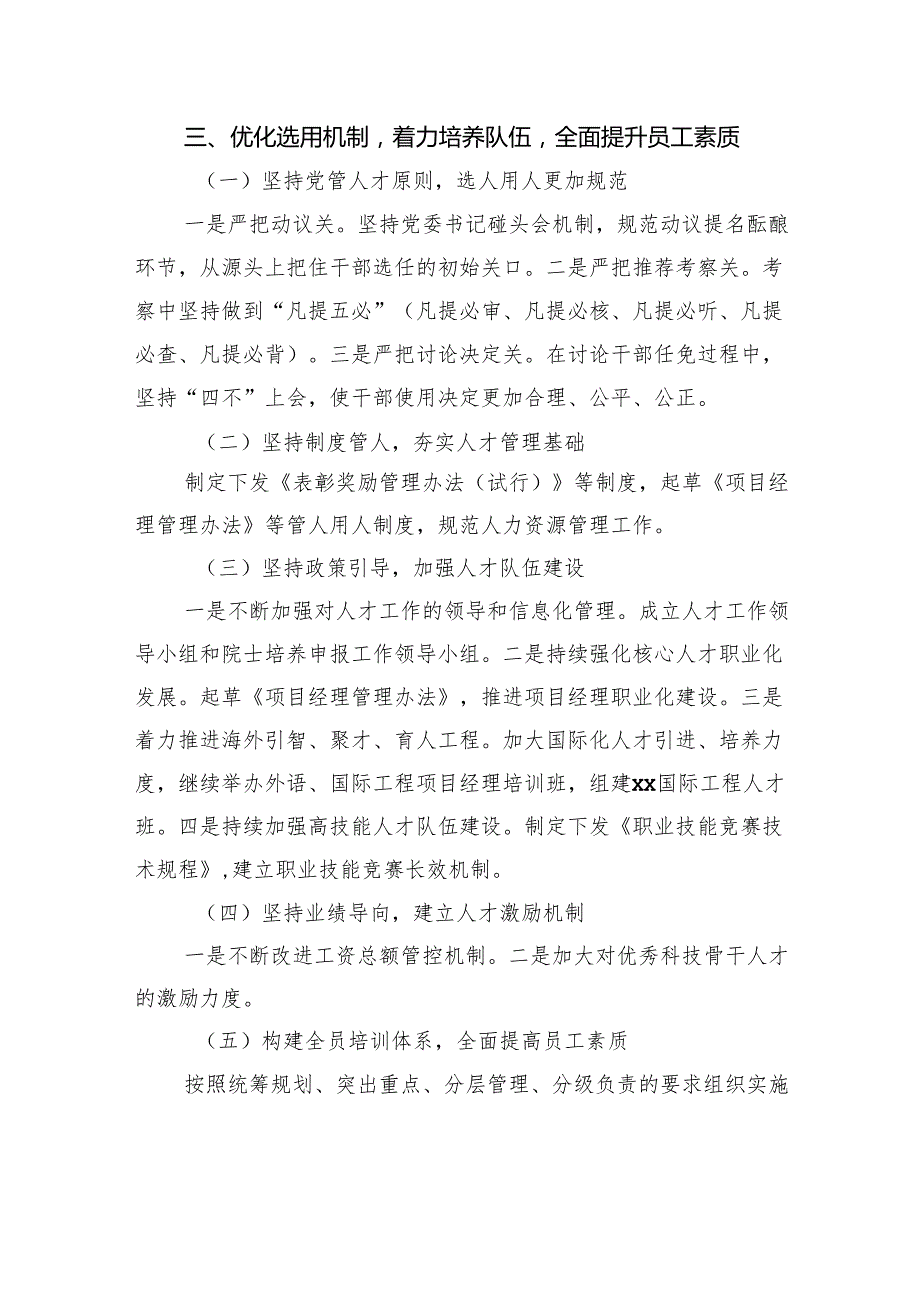 三、优化选用机制，着力培养队伍，全面提升员工素质
（一）坚持党管人才原则，选人用人更加规范
一是严把动议关。坚持党委书记碰头会机制，规范动议提名酝酿
环节，从源头上把住干部选任的初始关口。二是严把推荐考察关。考
察中坚持做到“凡提五必”（凡提必审、凡提必核、凡提必听、凡提
必查、凡提必背）。三是严把讨论决定关。在讨论干部任免过程中，
坚持“四不”上会，使干部使用决定更加合理、公平、公正。
（二）坚持制度管人，夯实人才管理基础
制定下发《表彰奖励管理办法（试行）》等制度，起草《项目经
理管理办法》等管人用人制度，规范人力资源管理工作。
（三）坚持政策引导，加强人才队伍建设
一是不断加强对人才工作的领导和信息化管理。成立人才工作领
导小组和院士培养申报工作领导小组。二是持续强化核心人才职业化
发展。起草《项目经理管理办法》，推进项目经理职业化建设。三是
着力推进海外引智、聚才、育人工程。加大国际化人才引进、培养力
度，继续举办外语、国际工程项目经理培训班，组建xx国际工程人才
班。四是持续加强高技能人才队伍建设。制定下发《职业技能竞赛技
术规程》,建立职业技能竞赛长效机制。
（四）坚持业绩导向，建立人才激励机制
一是不断改进工资总额管控机制。二是加大对优秀科技骨干人才
的激励力度。
（五）构建全员培训体系，全面提高员工素质
按照统筹规划、突出重点、分层管理、分级负责的要求组织实施